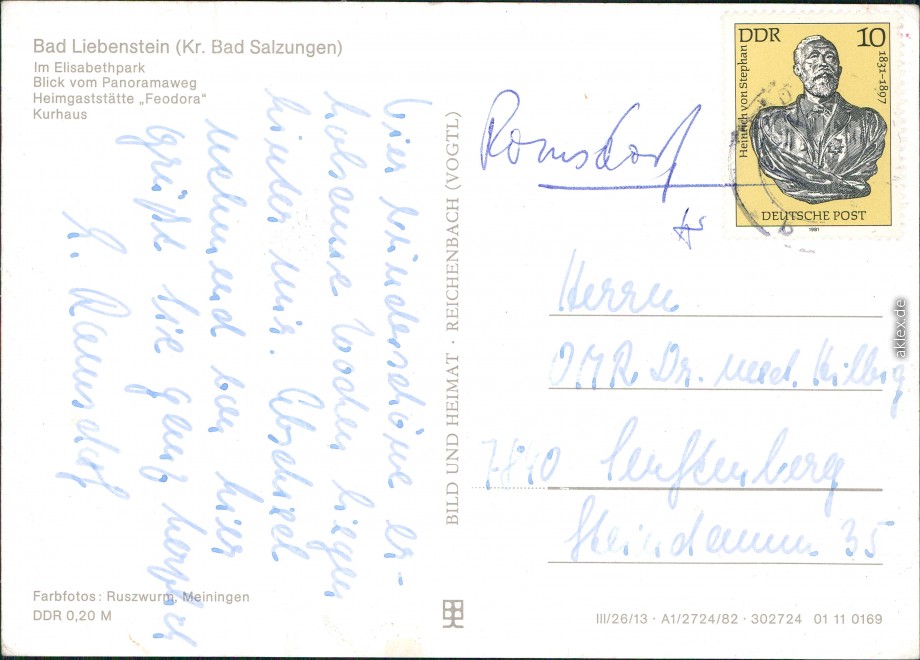 Bad Liebenstein (Kr. Bad Salzungen)
Im Elisabethpark
Blick vom Panoramaweg
Heimgaststätte „Feodora"
Kurhaus
Vier wunderschöne er-
holsame Wochen liegen
hinter mir. Abschied
nehmend von hier
grüßt Sie ganz herzlich
Ramsdorf
Farbfotos: Ruszwurm, Meiningen
DDR 0,20 M
BILD UND HEIMAT · REICHENBACH (VOGTL)
Ramsdorf
DDR 10
Heinrich von Stephan
1831-1897
DEUTSCHE POST
1981
Herrn
OMR Dr. med. Kilbig
7840 Senftenberg
Steindamm 35
III/26/13 · A1/2724/82 · 302724 01 11 0169
aklex.de